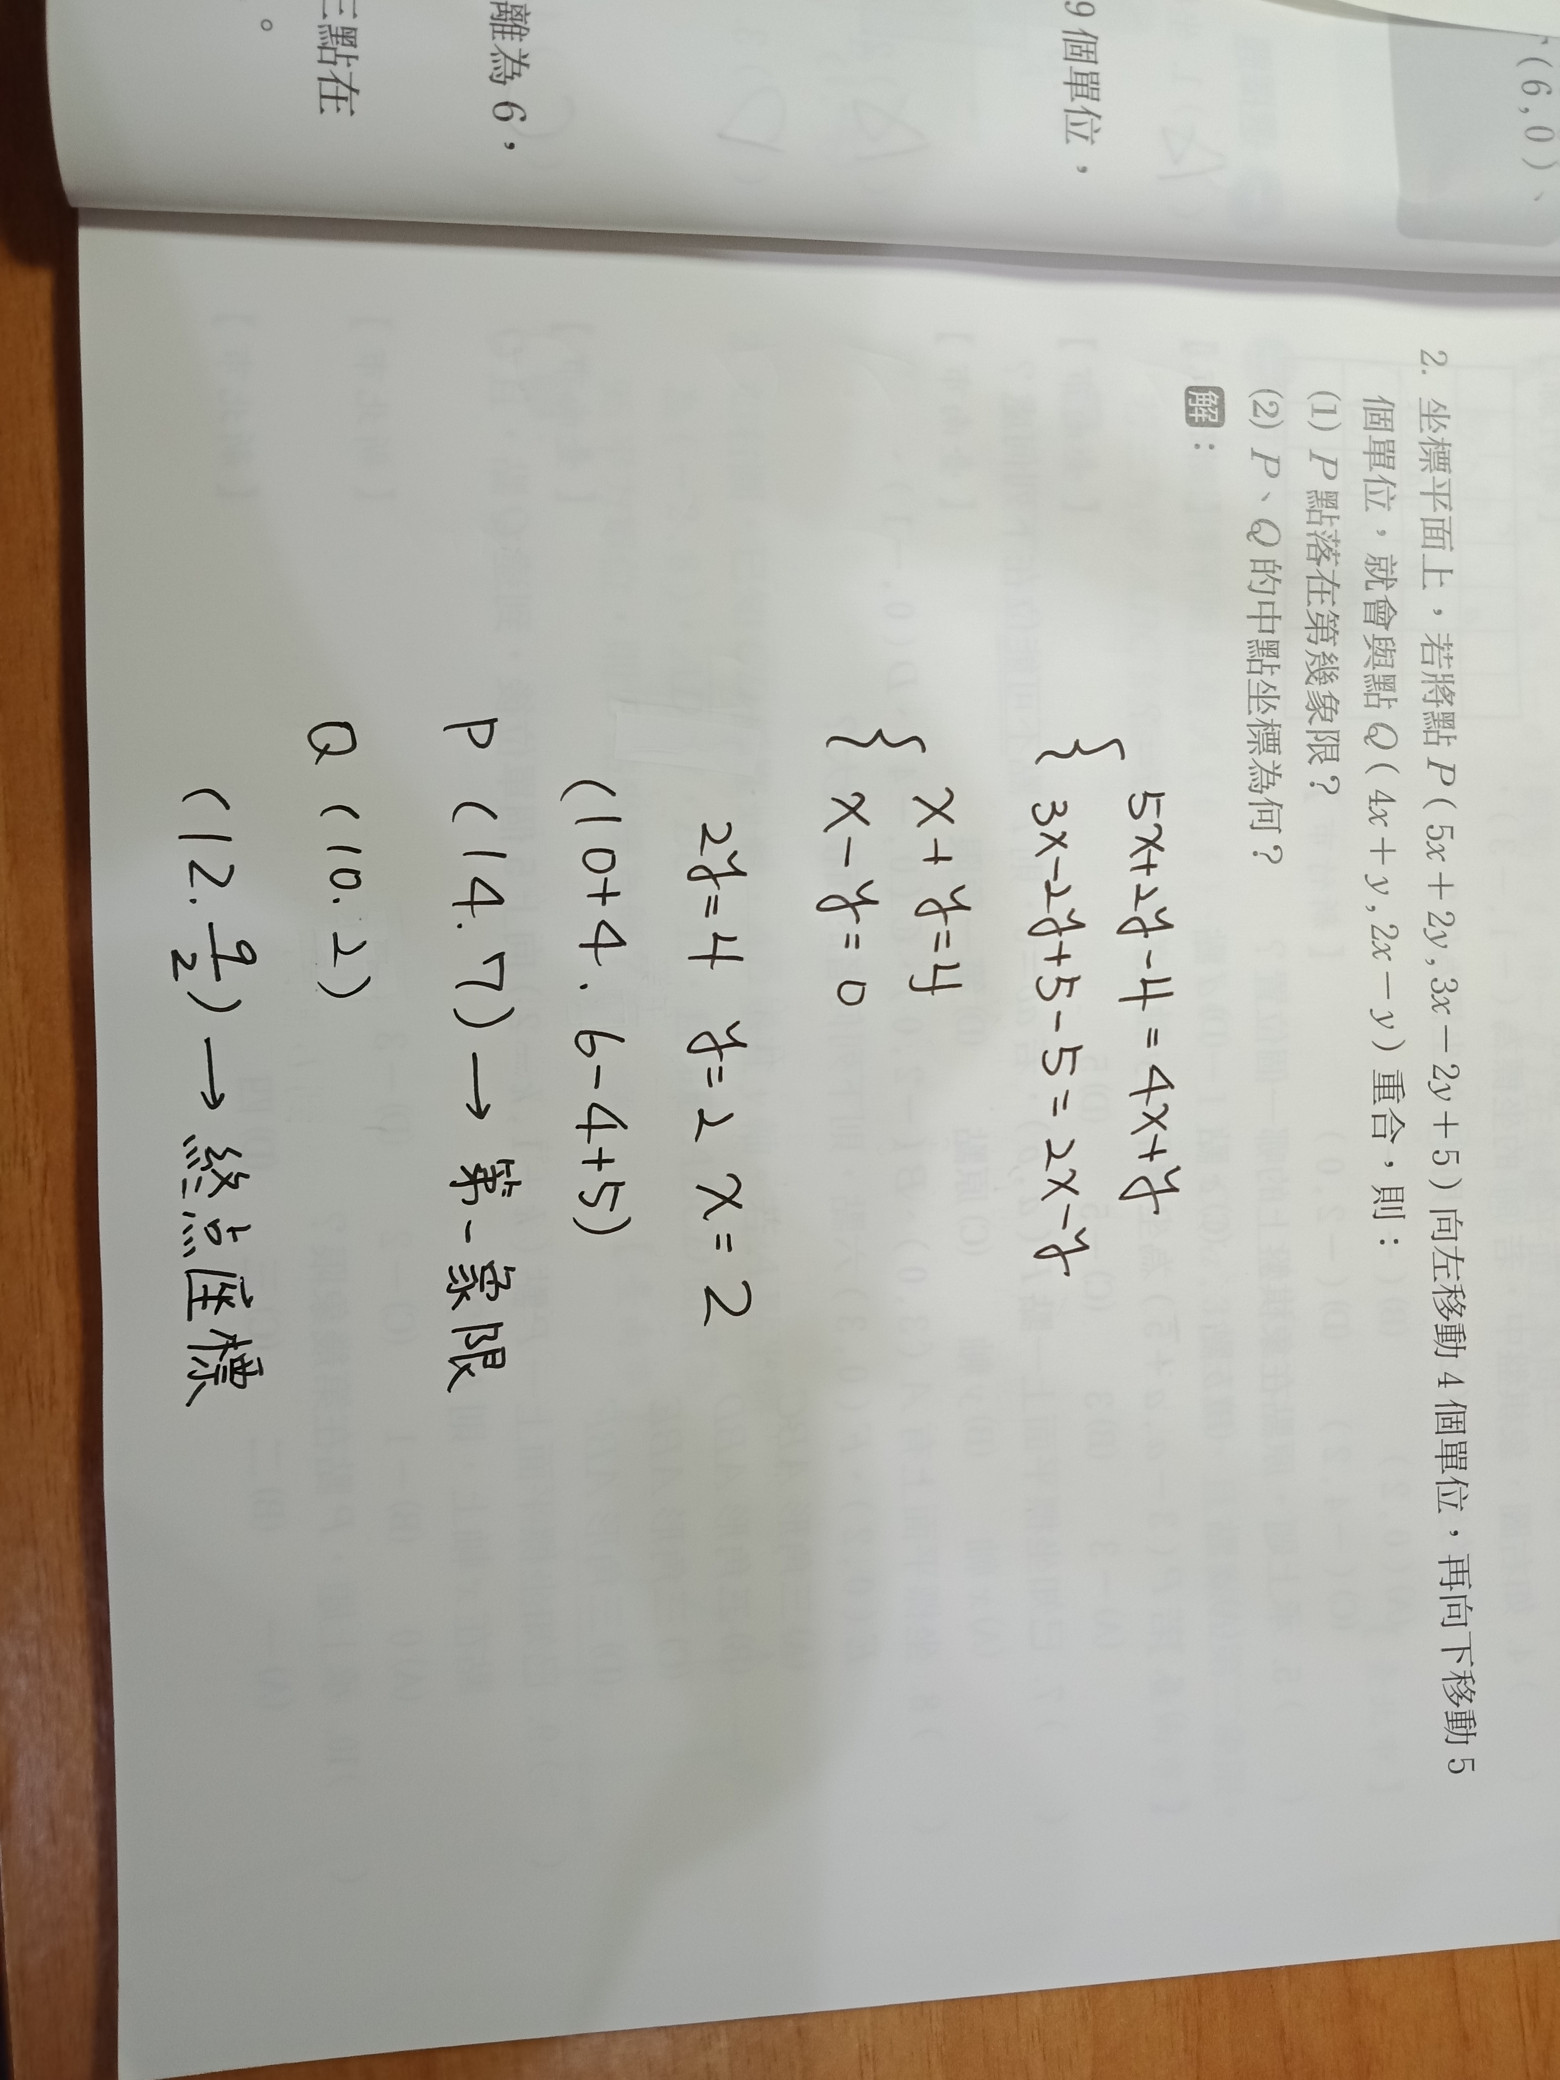 (6,0)、
9 個單位，
離為 6，
三點在
。
2. 坐標平面上，若將點 P(5x＋2y,3x－2y＋5)向左移動 4 個單位，再向下移動 5
個單位，就會與點 Q(4x＋y,2x－y)重合，則：
(1) P 點落在第幾象限？
(2) P、Q 的中點坐標為何？
解：
5x+2y-4=4x+y
3x-2y+5-5=2x-y
x+y=4
x-y=0
2y=4 y=2 x=2
(10+4.6-4+5)
P(14.7)→第一象限
Q(10.2)
(12.9/2)→終点座標